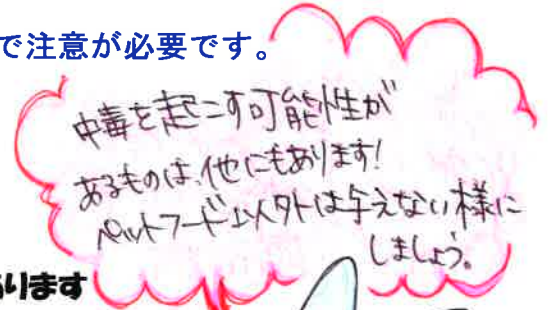 で注意が必要です。
中毒を起こす可能性が
あるものは、他にもあります!
ペットフード以外は与えない様に
しましょう。
あります